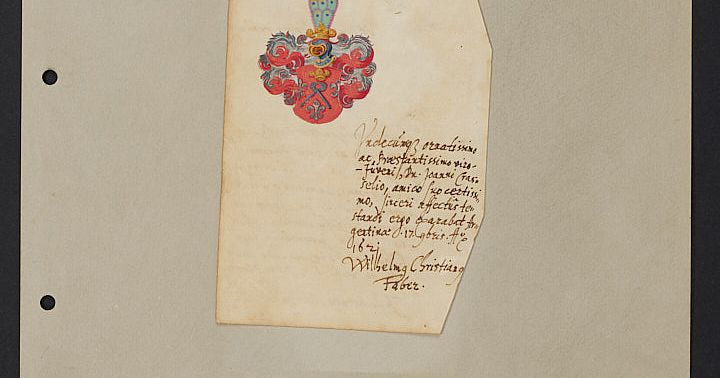 Undecunq; ornatissimo
ac, Præstantissimo viro-
-Juveni, Dn. Joanni Cras-
selio, amico suo certissi-
mo, sinceri affectus te-
standi ergo exarabat Ar-
gentinæ d. 17. 9bris. Aº
1621
Wilhelmg Christiang
Faber.